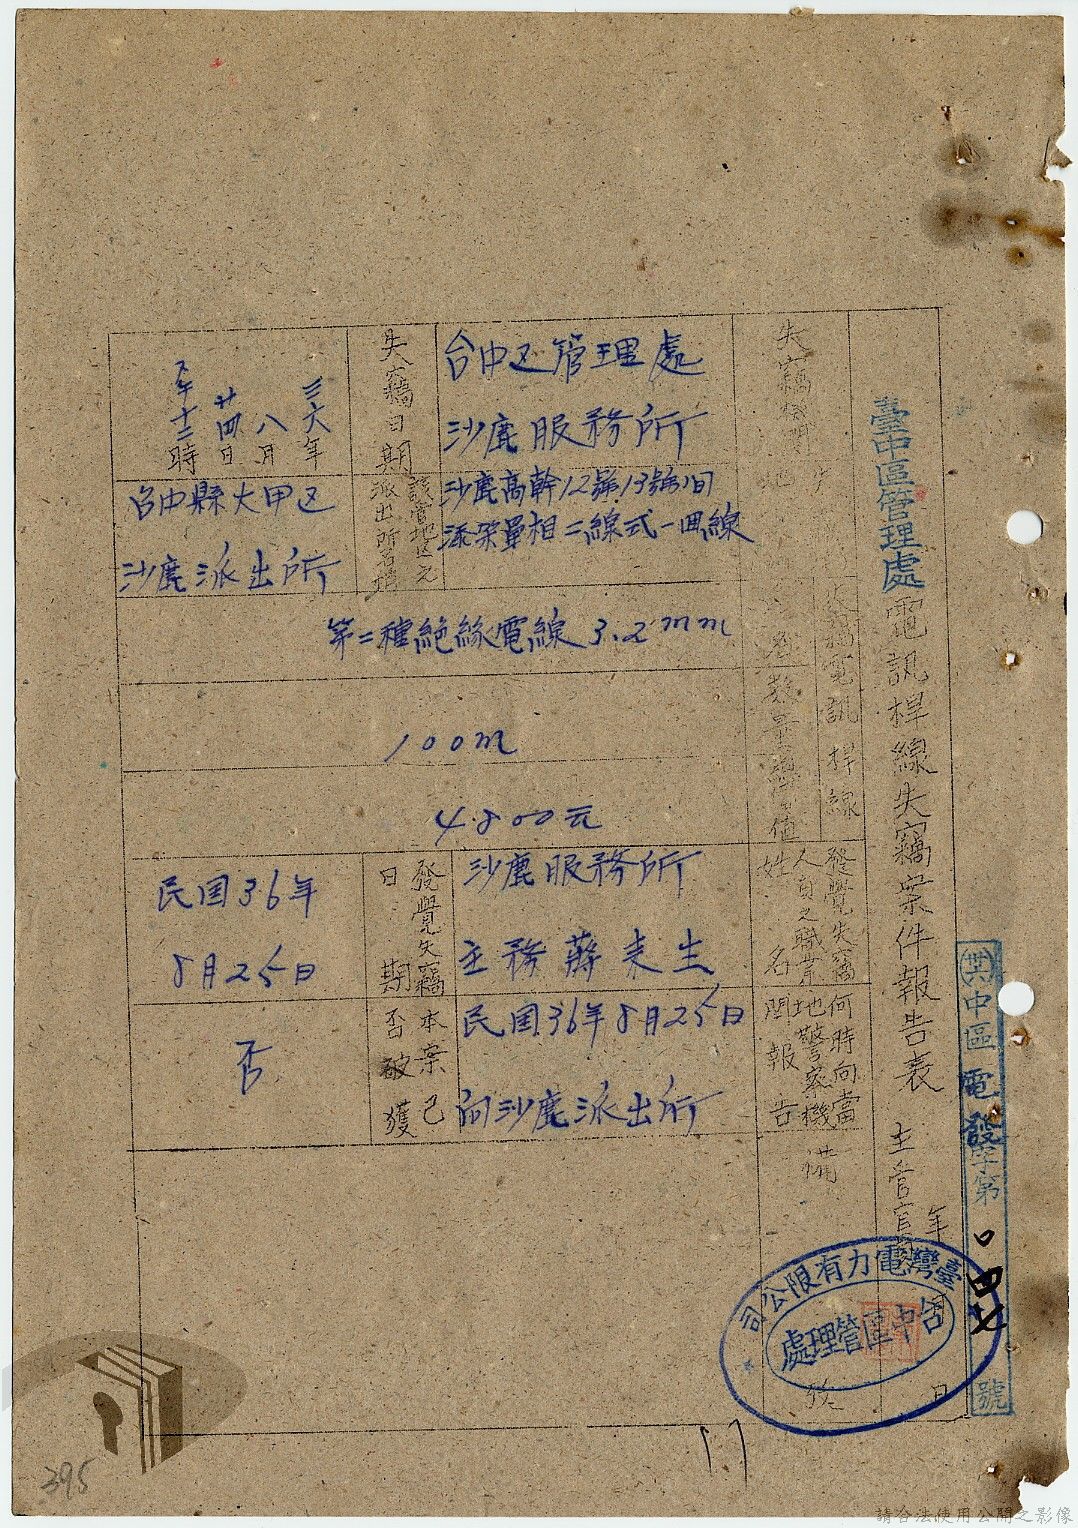 臺中區管理處電訊桿線失竊案件報告表
主管官
年
日
卅六中區電發字第〇四七號
臺灣電力有限公司
台中區管理處
失竊機關
台中区管理處
沙鹿服務所
失竊日期
三六年
八月
廿四日
下午十二時
失
地
沙鹿高幹12號13號間
添架單相二線式一回線
該管地区之
派出所名稱
台中縣大甲区
沙鹿派出所
電訊桿線
數量
值
第二種絕緣電線3.2mm
100m
4.800元
發覺失竊
人員之職
姓名
沙鹿服務所
主務蔣来生
發覺失竊
日期
民国36年
8月25日
何時向當
地警察機
關報告
民国36年8月25日
向沙鹿派出所
本案已
否被獲
否
備
395
請合法使用公開之影像